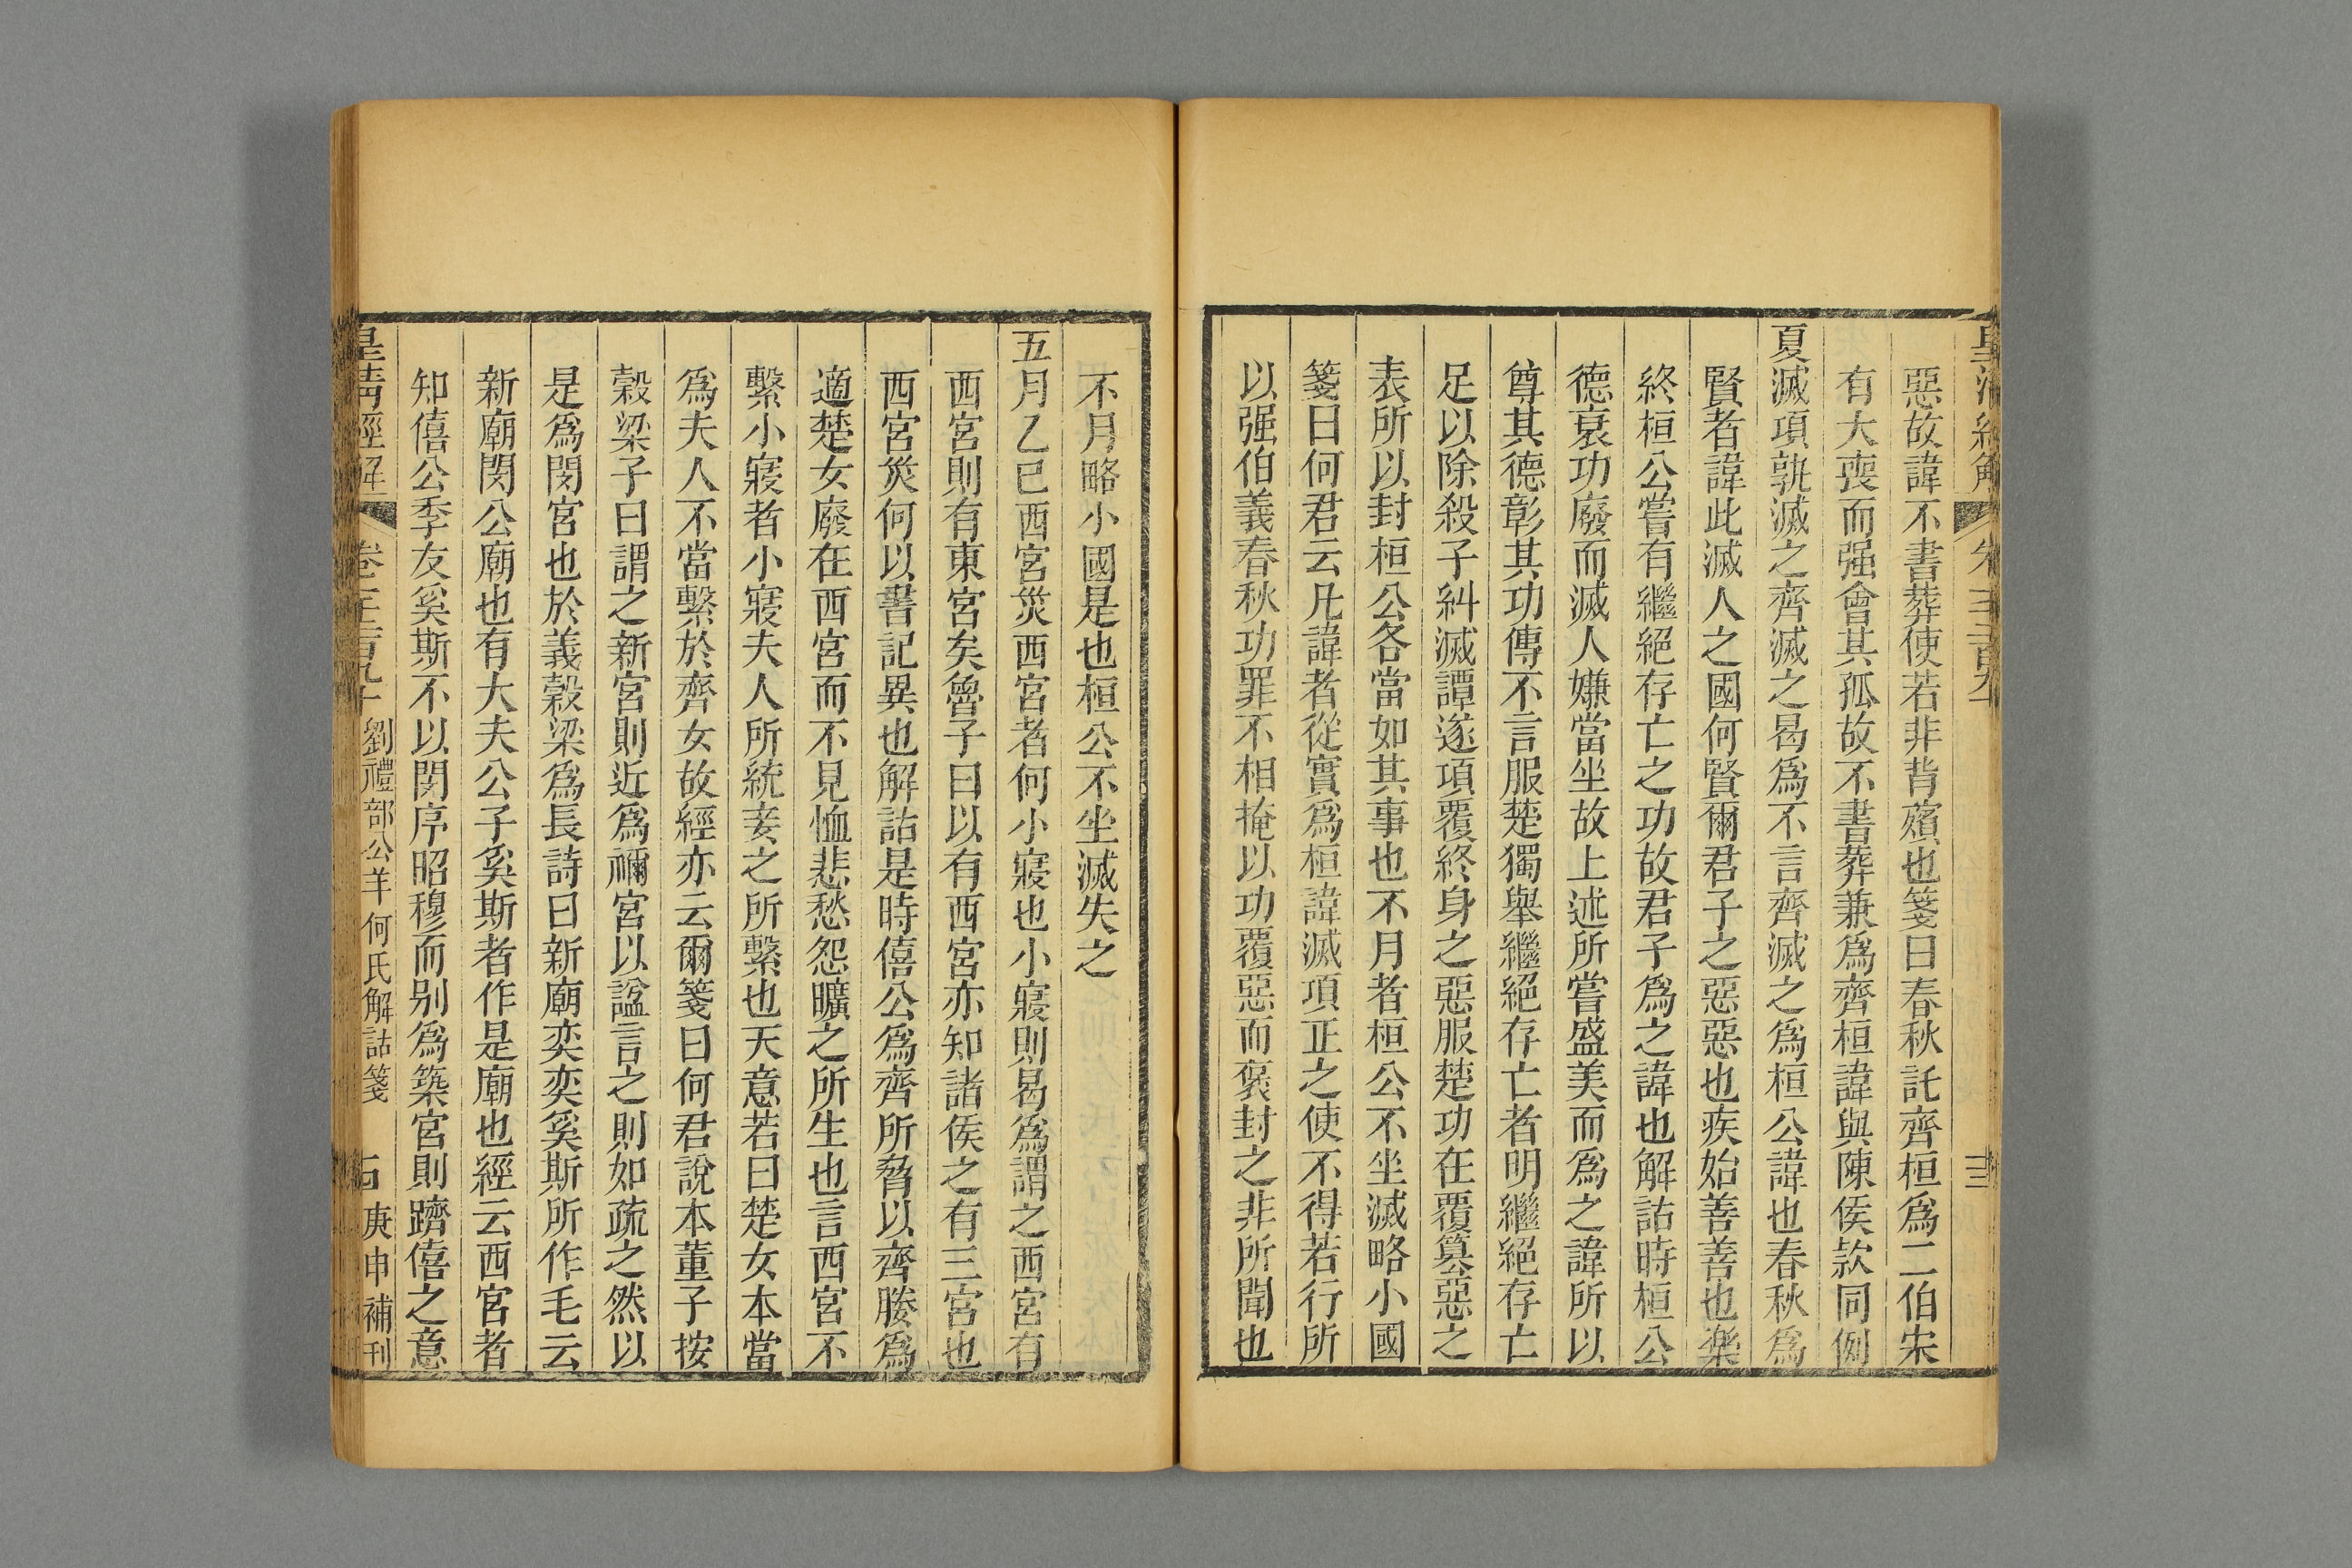 惡故諱不書葬使若非背殯也箋曰春秋託齊桓爲二伯朱
有大喪而强會其孤故不書葬兼爲齊桓諱與陳侯款同例
夏滅項孰滅之齊滅之曷爲不言齊滅之爲桓公諱也春秋爲
賢者諱此滅人之國何賢爾君子之惡惡也疾始善善也樂
終桓公嘗有繼絕存亡之功故君子爲之諱也解詁時桓公
德衰功廢而滅人嫌當坐故上述所嘗盛美而爲之諱所以
尊其德彰其功傳不言服楚獨舉繼絕存亡者明繼絕存亡
足以除殺子糾滅譚遂項覆終身之惡服楚功在覆篡惡之
表所以封桓公各當如其事也不月者桓公不坐滅略小國
箋曰何君云凡諱者從實爲桓諱滅項正之使不得若行所
以强伯義春秋功罪不相掩以功覆惡而褒封之非所聞也
不月略小國是也桓公不坐滅失之
五月乙巳西宮災西宮者何小寢也小寢則曷爲謂之西宮有
西宮則有東宮矣魯子曰以有西宮亦知諸侯之有三宮也
西宮災何以書記異也解詁是時僖公爲齊所脅以齊媵爲
適楚女廢在西宮而不見恤悲愁怨曠之所生也言西宮不
繫小寢者小寢夫人所統妾之所繫也天意若曰楚女本當
爲夫人不當繫於齊女故經亦云爾箋曰何君說本董子按
穀梁子曰謂之新宮則近爲禰宮以諡言之則如疏之然以
是爲閔宮也於義穀梁爲長詩曰新廟奕奕奚斯所作毛云
新廟閔公廟也有大夫公子奚斯者作是廟也經云西宮者
知僖公季友奚斯不以閔序昭穆而别爲築宮則躋僖之意
皇清經解 卷千二百九十 劉禮部公羊何氏解詁箋 庚申補刊